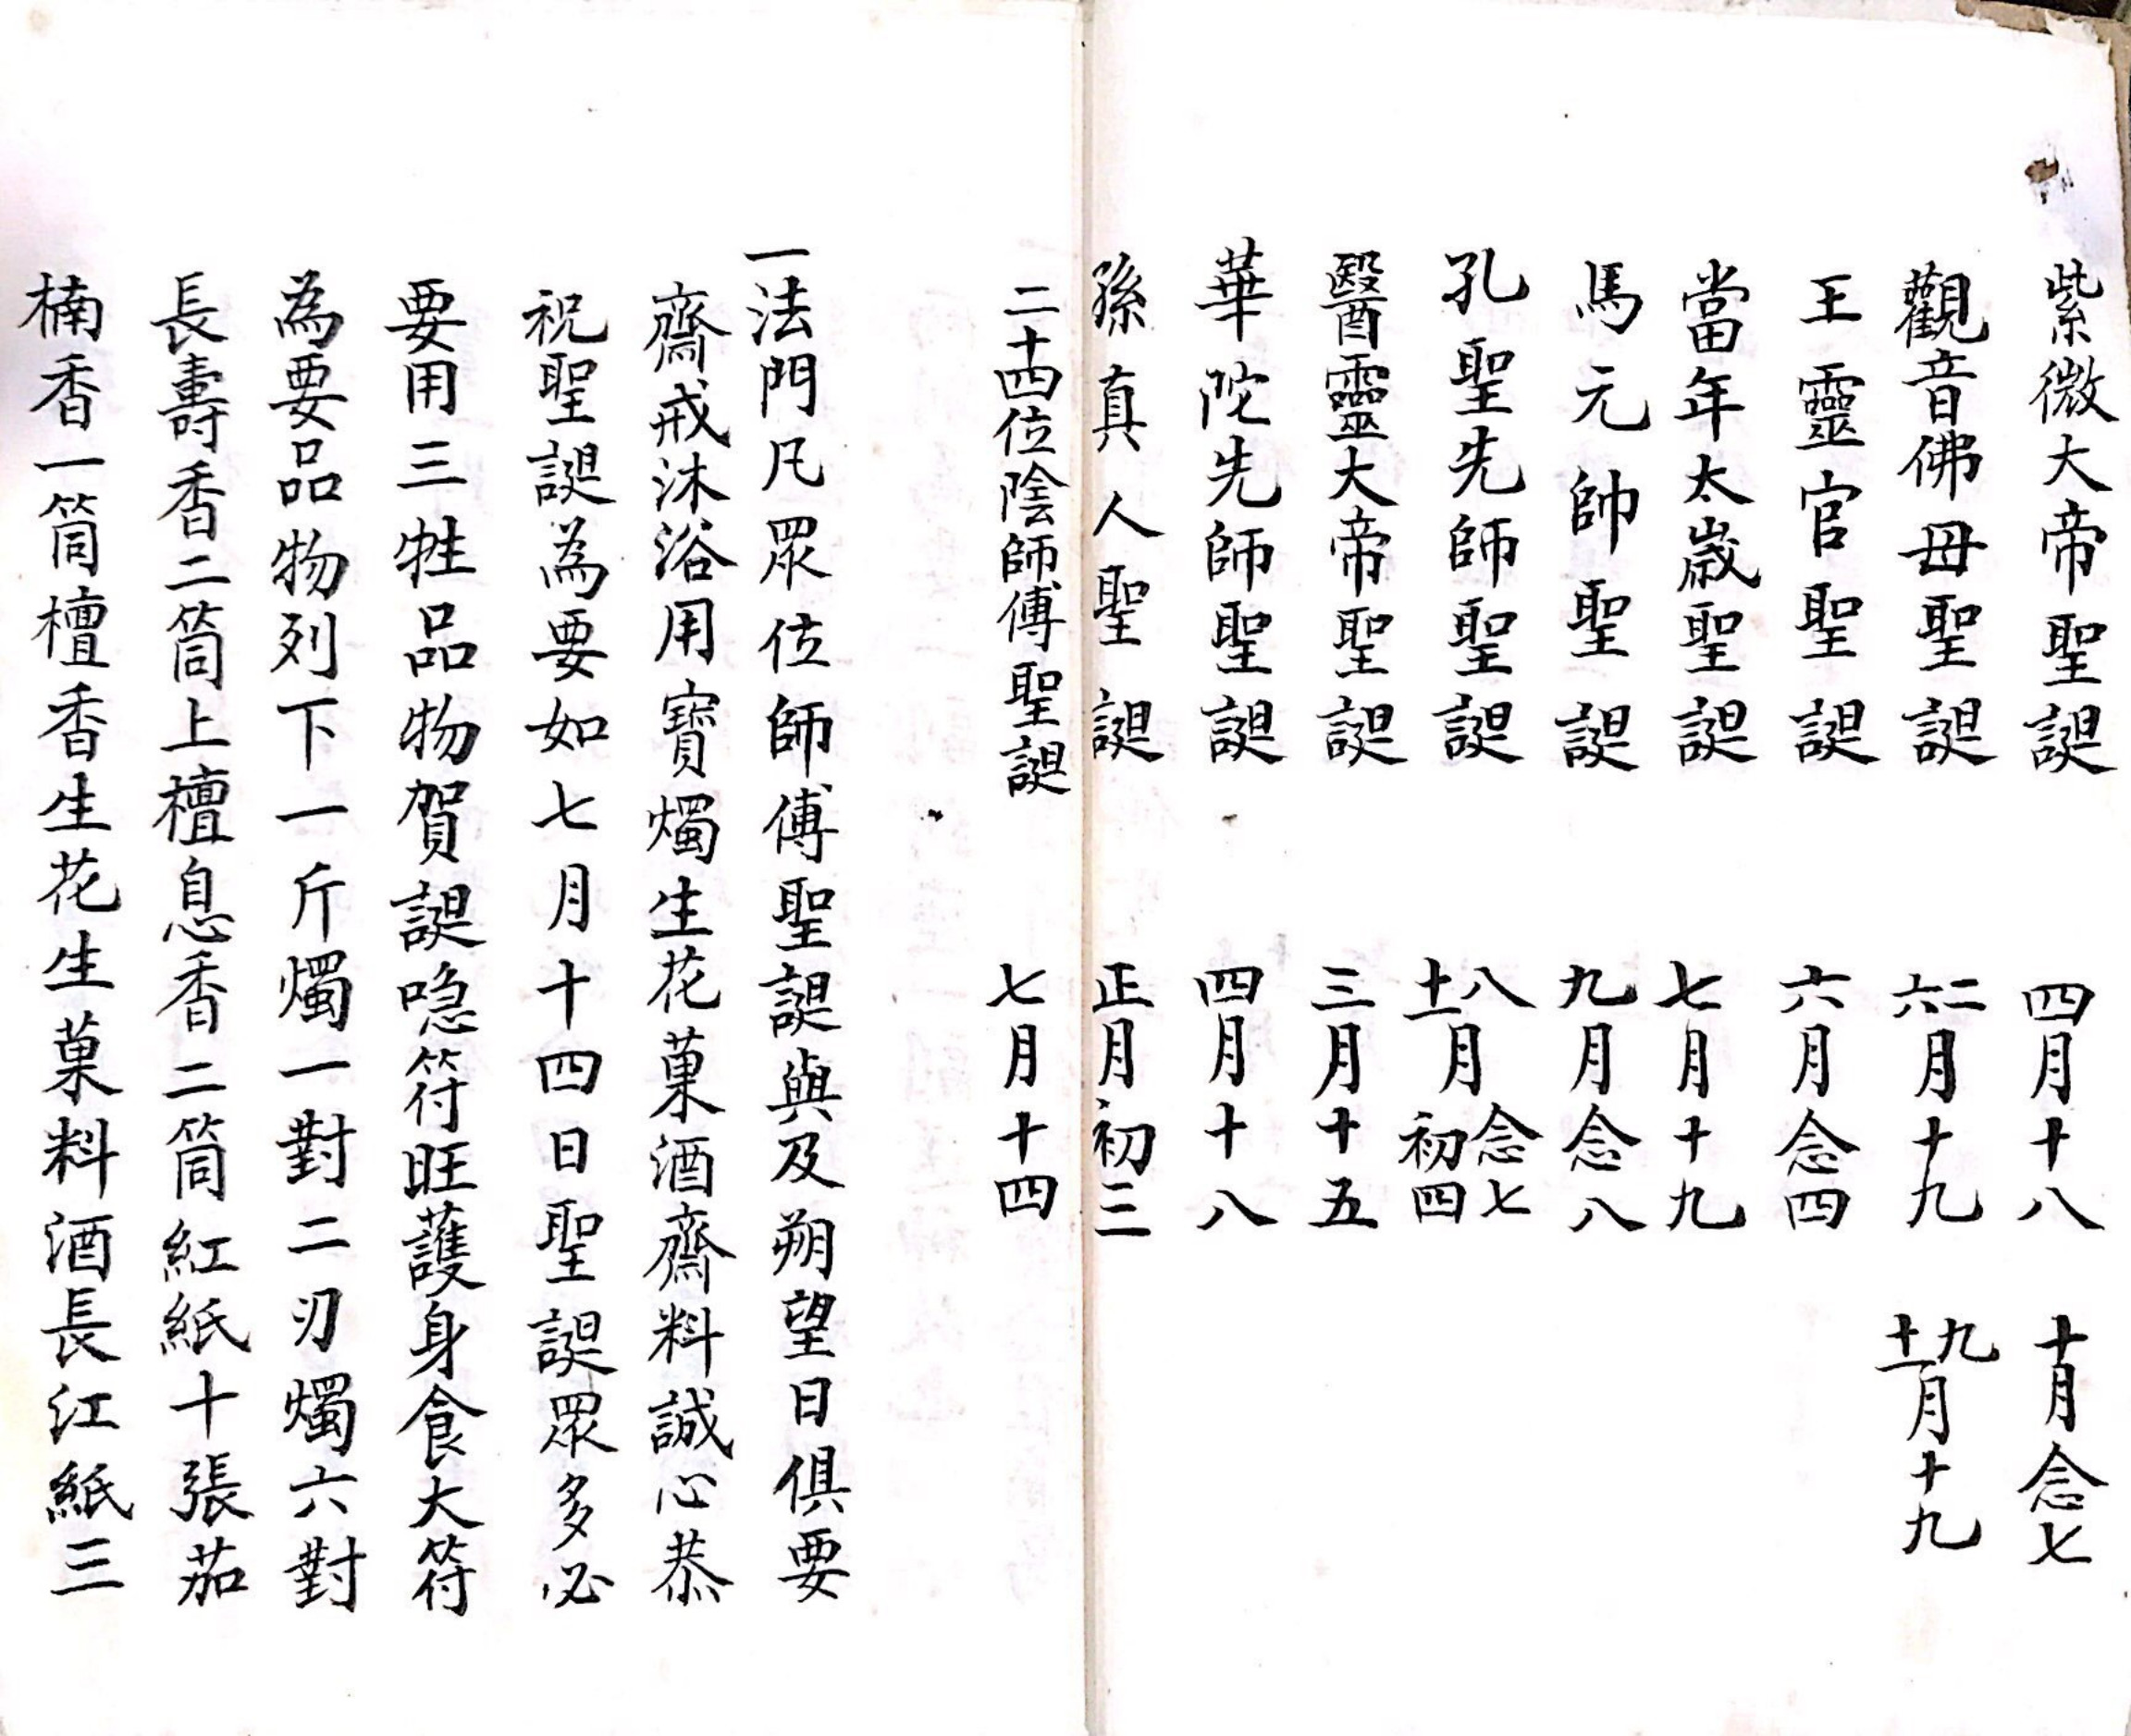 紫微大帝聖誕 四月十八 十月念七
觀音佛母聖誕 二六月十九 九十一月十九
王靈官聖誕 六月念四
當年太歲聖誕 七月十九
馬元帥聖誕 九月念八
孔聖先師聖誕 八十一月念七初四
醫靈大帝聖誕 三月十五
華陀先師聖誕 四月十八
孫真人聖誕 正月初三
二十四位陰師傅聖誕 七月十四
一法門凡眾位師傅聖誕與及朔望日俱要
齋戒沐浴用寶燭生花菓酒齋料誠心恭
祝聖誕為要如七月十四日聖誕眾多必
要用三牲品物賀誕喼符旺護身食大符
為要品物列下一斤燭一對二刃燭六對
長壽香二筒上檀息香二筒紅紙十張茄
楠香一筒檀香生花生菓料酒長江紙三